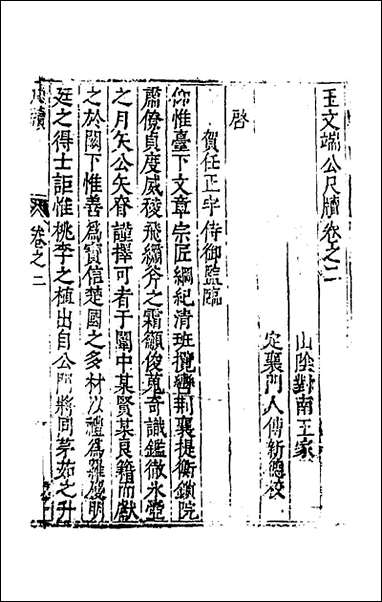 王文端公尺牘卷之二
山陰對南王家
定襄門人傅新德校
啓
賀任正宇侍御監臨
仰惟臺下文章宗匠綱紀清班攬轡荆襄提衡鎖院
肅僚貞度威稜飛繡斧之霜籲俊蒐奇識鑑徹氷壺
之月矢公矢脊謹擇可者于闈中某賢某良籍而獻
之於闕下惟善爲寳信楚國之多材以禮爲羅慶明
廷之得士詎惟桃李之植出自公門將同茅茹之升
尺牘
卷之二